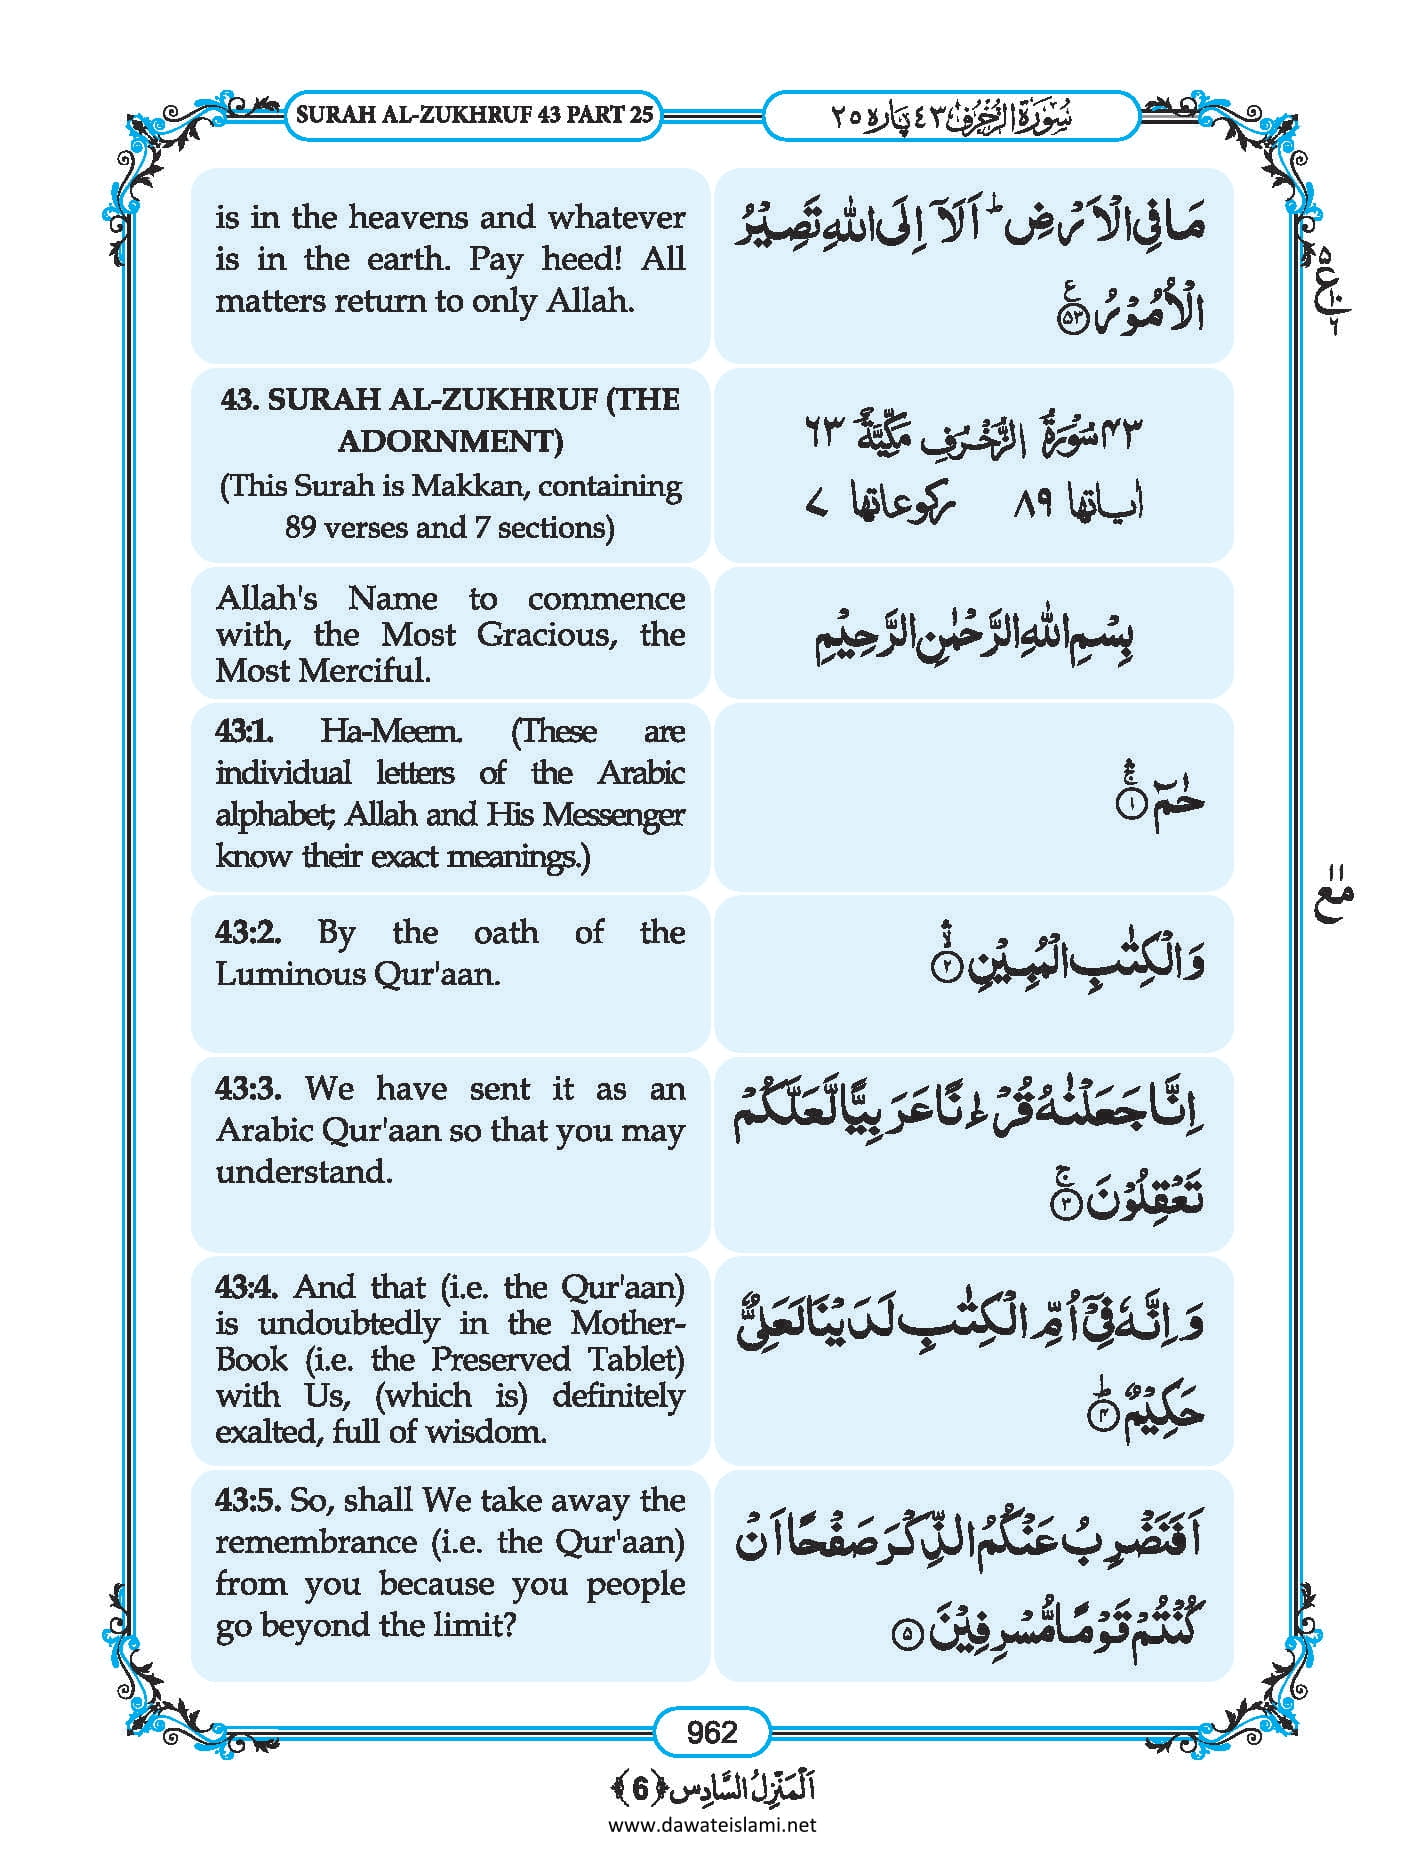 SURAH AL-ZUKHRUF 43 PART 25
سُوْرَةُ الزُّخْرُف ٤٣ پارہ ٢٥
is in the heavens and whatever
is in the earth. Pay heed! All
matters return to only Allah.
مَا فِي الْاَرْضِ ؕ اَلَاۤ اِلَى اللّٰهِ تَصِيْرُ
الْاُمُوْرُ ﴿۵۳﴾ ع
۵
ع
۱۰
٦
43. SURAH AL-ZUKHRUF (THE
ADORNMENT)
(This Surah is Makkan, containing
89 verses and 7 sections)
۴۳ سُوْرَةُ الزُّخْرُفِ مَكِّيَّةٌ ٦٣
اٰیاتها ٨٩ رکوعاتها ٧
Allah's Name to commence
with, the Most Gracious, the
Most Merciful.
بِسْمِ اللّٰهِ الرَّحْمٰنِ الرَّحِيْمِ
43:1. Ha-Meem. (These are
individual letters of the Arabic
alphabet; Allah and His Messenger
know their exact meanings.)
حٰمٓ ﴿۱﴾
۱۱
مع
43:2. By the oath of the
Luminous Qur'aan.
وَ الْكِتٰبِ الْمُبِيْنِ ﴿۲﴾
43:3. We have sent it as an
Arabic Qur'aan so that you may
understand.
اِنَّا جَعَلْنٰهُ قُرْءٰنًا عَرَبِيًّا لَّعَلَّكُمْ
تَعْقِلُوْنَ ﴿۳﴾ ج
43:4. And that (i.e. the Qur'aan)
is undoubtedly in the Mother-
Book (i.e. the Preserved Tablet)
with Us, (which is) definitely
exalted, full of wisdom.
وَ اِنَّهٗ فِيْۤ اُمِّ الْكِتٰبِ لَدَيْنَا لَعَلِيٌّ
حَكِيْمٌ ﴿۴﴾ ؕ
43:5. So, shall We take away the
remembrance (i.e. the Qur'aan)
from you because you people
go beyond the limit?
اَفَنَضْرِبُ عَنْكُمُ الذِّكْرَ صَفْحًا اَنْ
كُنْتُمْ قَوْمًا مُّسْرِفِيْنَ ﴿۵﴾
962
اَلْمَنْزِلُ السَّادِس ﴿6﴾
www.dawateislami.net